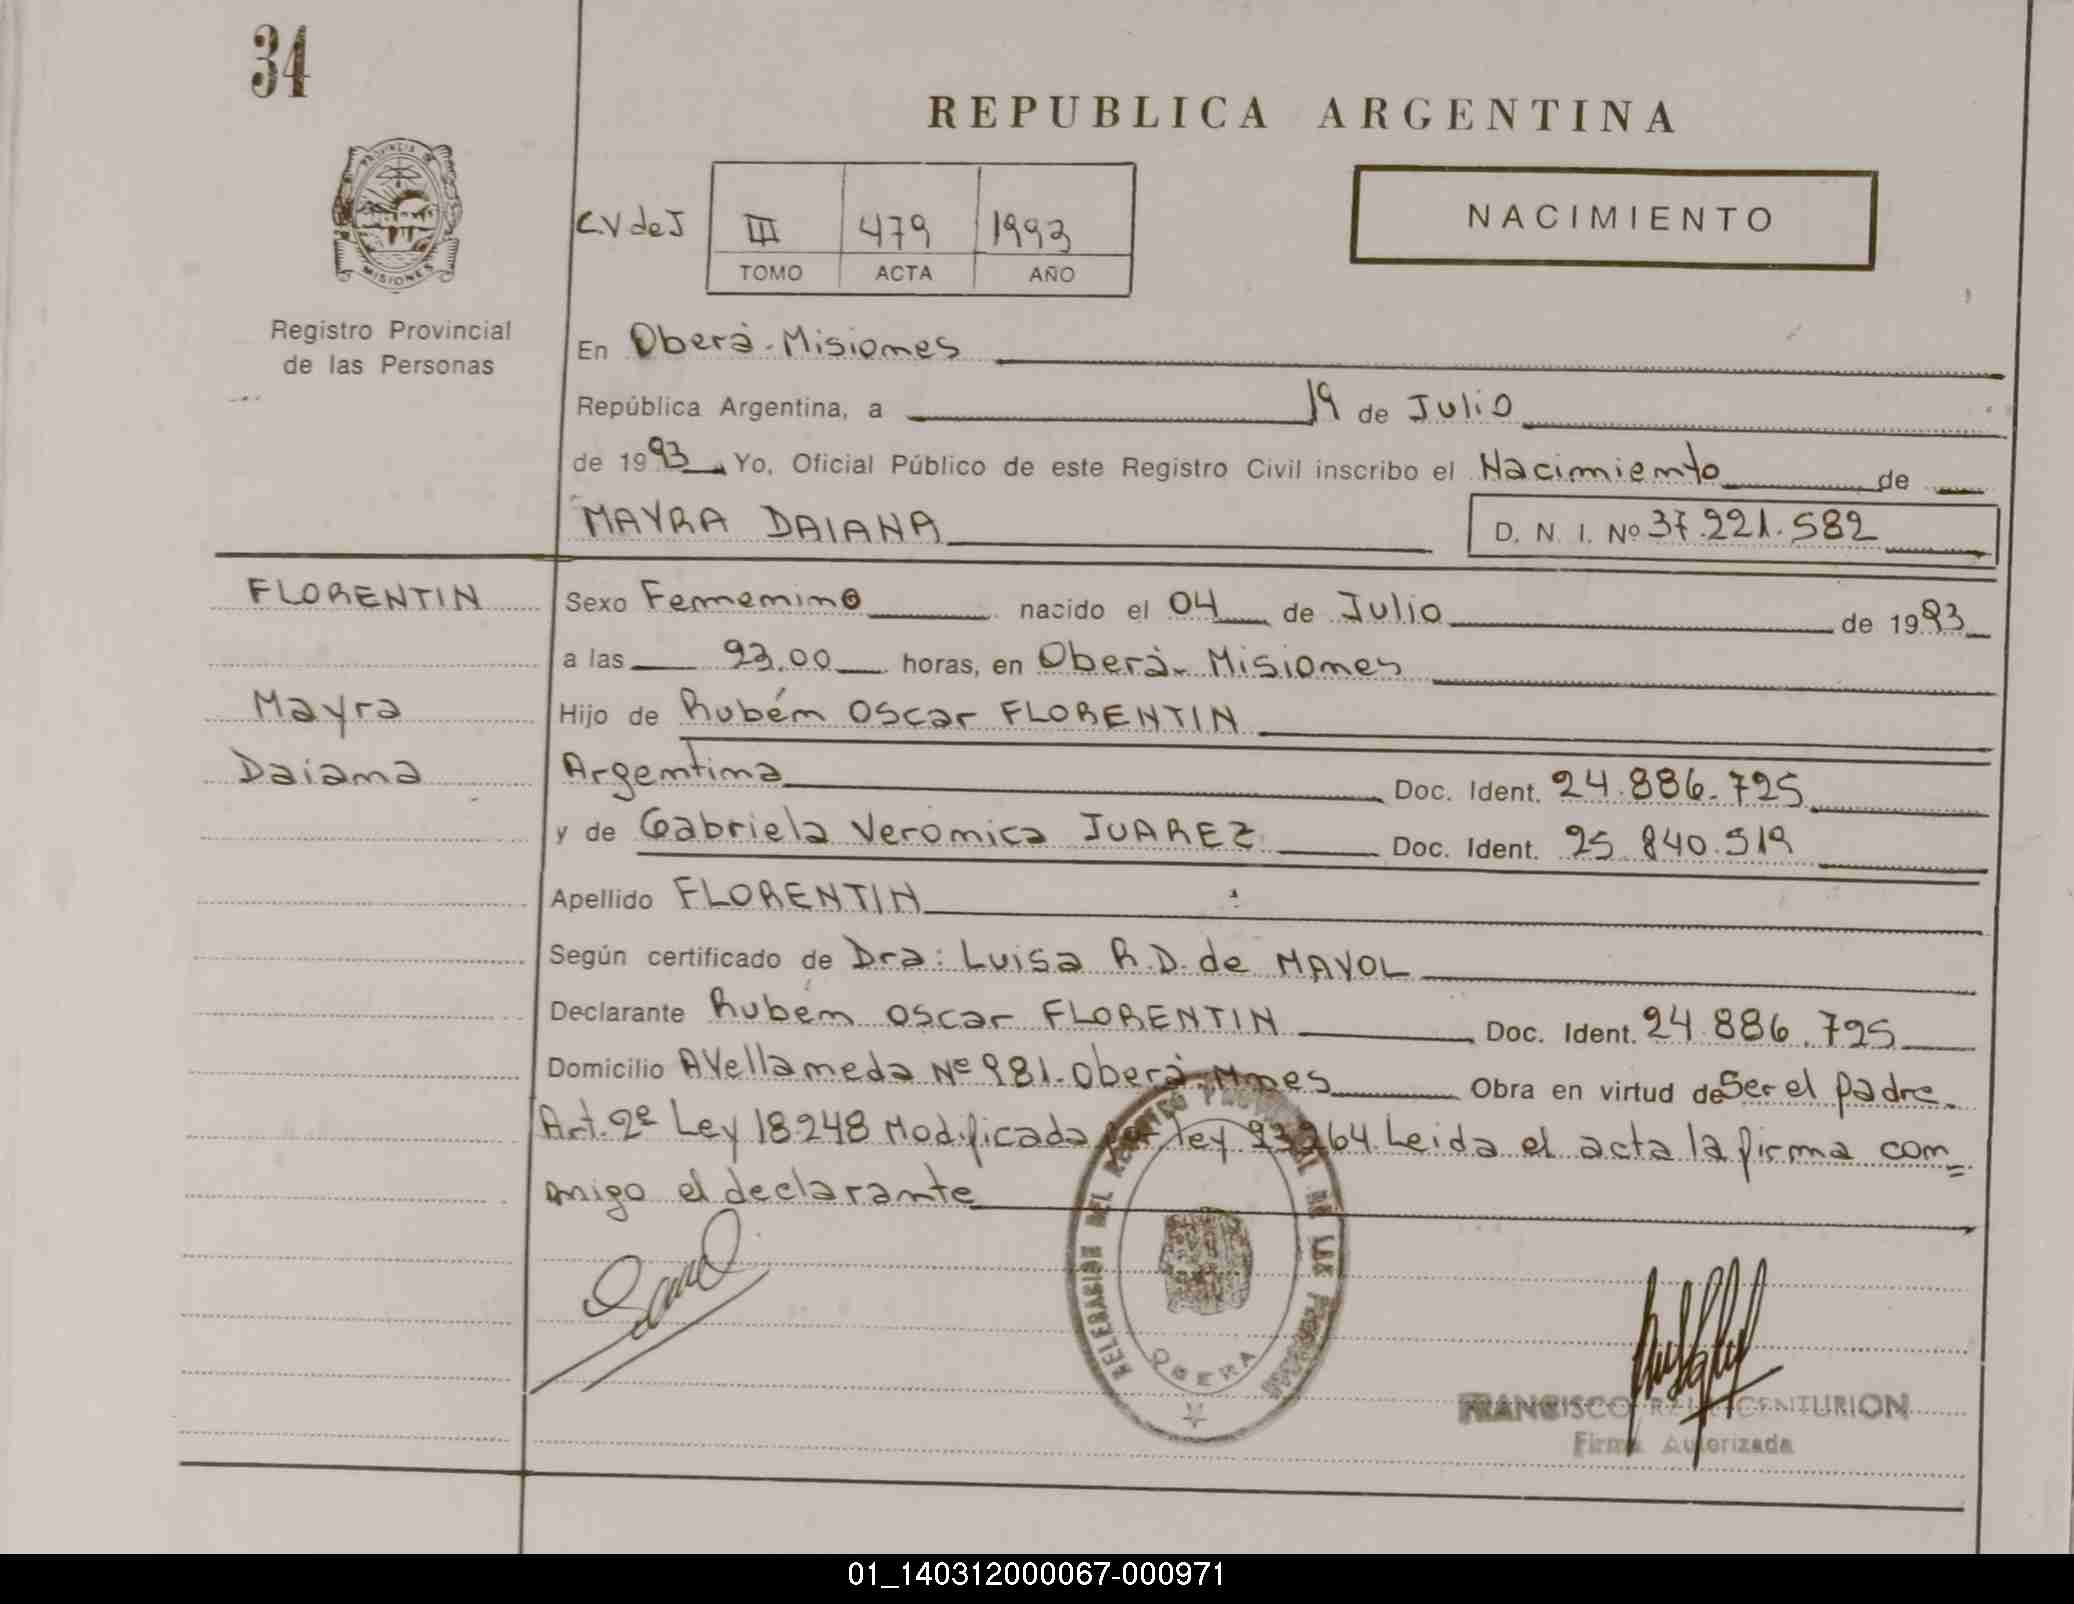 34
REPUBLICA ARGENTINA
PROVINCIA DE
MISIONES
C.V de J III 479 1993
TOMO ACTA AÑO
NACIMIENTO
Registro Provincial
de las Personas
En Oberá - Misiones
República Argentina, a 19 de Julio
de 1993 Yo, Oficial Público de este Registro Civil inscribo el Nacimiento de
MAYRA DAIANA D. N. I. Nº 37.221.582
FLORENTIN
Mayra
Daiana
Sexo Femenino nacido el 04 de Julio de 1993
a las 23,00 horas, en Oberá - Misiones
Hijo de Rubén Oscar FLORENTIN
Argentina Doc. Ident. 24.886.725
y de Gabriela Veronica JUAREZ Doc. Ident. 25.840.519
Apellido FLORENTIN
Según certificado de Dra: Luisa R.D. de MAYOL
Declarante Rubén Oscar FLORENTIN Doc. Ident. 24.886.725
Domicilio AVellaneda Nº 981. Oberá. Mnes Obra en virtud de Ser el padre.
Art. 2º Ley 18248 Modificada por ley 23264. Leida el acta la firma con=
migo el declarante
DEL REGISTRO PROVINCIAL DE LAS PERSONAS
OBERA
FRANCISCO CENTURION
Firma Autorizada
01_140312000067-000971